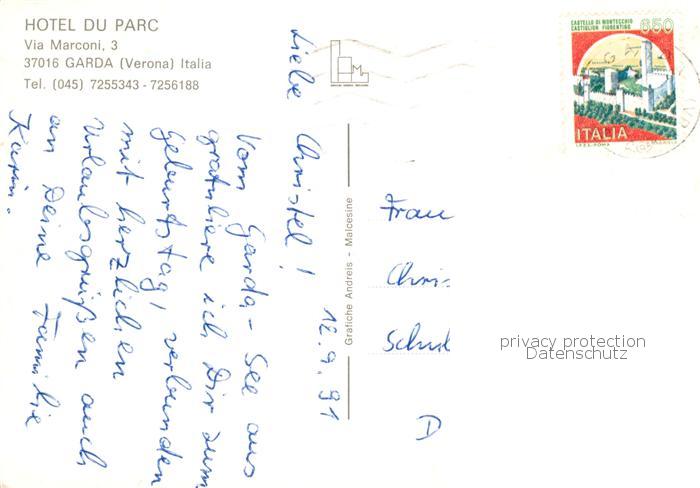 HOTEL DU PARC
Via Marconi, 3
37016 GARDA (Verona) Italia
Tel. (045) 7255343 - 7256188
CASTELLO DI MONTECCHIO
CASTIGLION FIORENTINO
650
ITALIA
I.P.Z.S. ROMA
Grafiche Andreis - Malcesine
12.9.91
Liebe Christel!
Vom Garda-See aus
gratuliere ich Dir zum
Geburtstag, verbunden
mit herzlichen
Urlaubsgrüßen auch
an Deine Familie
Karin.
Frau
Chris
Schul
D
privacy protection
Datenschutz